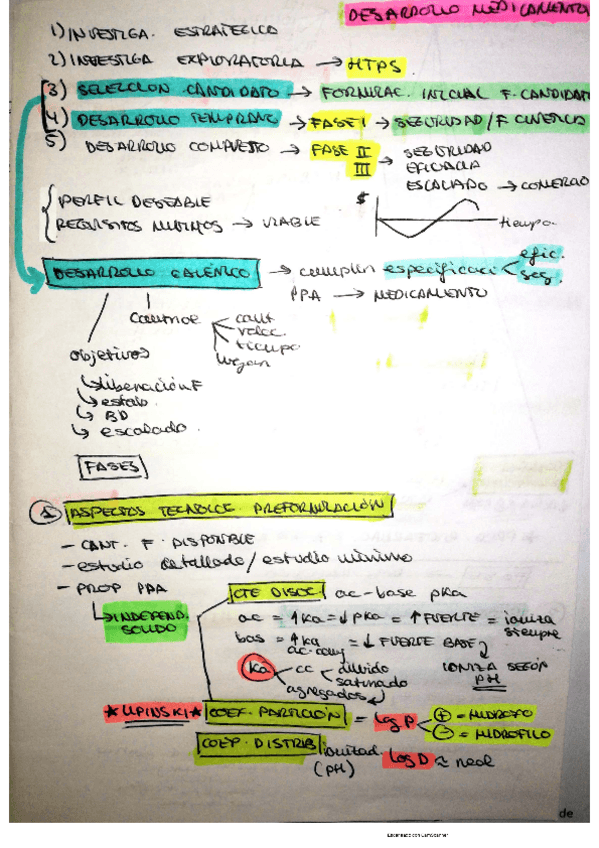 DESARROLLO MEDICAMENTO
1) INVESTIGA. ESTRATEGICO
2) INVESTIGA EXPLORATORIA → HTPS
3) SELECCION CANDIDATO → FORMULAC. INICIAL F. CANDIDAT
4) DESARROLLO TEMPRANO → FASE I → SEGURIDAD / F CINETICA
5) DESARROLLO COMPLETO → FASE II III → SEGURIDAD
EFICACIA
ESCALADO → COMERCIO
PERFIL DESEABLE
REQUISITOS MINIMOS → VIABLE
$
tiempo
DESARROLLO GALÉNICO → cumplen especificaci
efic.
seg.
PPA → MEDICAMENTO
Controle
cant
veloc.
tiempo
lugar
objetivos
↳ liberación F
↳ estab.
↳ BD
↳ escalado.
FASES
1 ASPECTOS TECNOLOG. PREFORMULACIÓN
- CANT. F. DISPONIBLE
- estudio detallado / estudio mínimo
- PROP PPA
↳ INDEPEND. SOLIDO
CTE DISOC. ac-base pKa
ac = ↑Ka = ↓ pKa = ↑ FUERTE = ioniza siempre
bas = ↑Ka = ↓ FUERTE BASE
ac. conj
IONIZA SEGÚN PH
Ka
cc
diluido
saturado
agregados
★ LIPINSKI ★ COEF. PARTICIÓN = log P
⊕ = HIDROFO
⊖ = HIDROFILO
COEF. DISTRIB ionizad. (pH) log D ≈ real
de
Escaneado con CamScanner